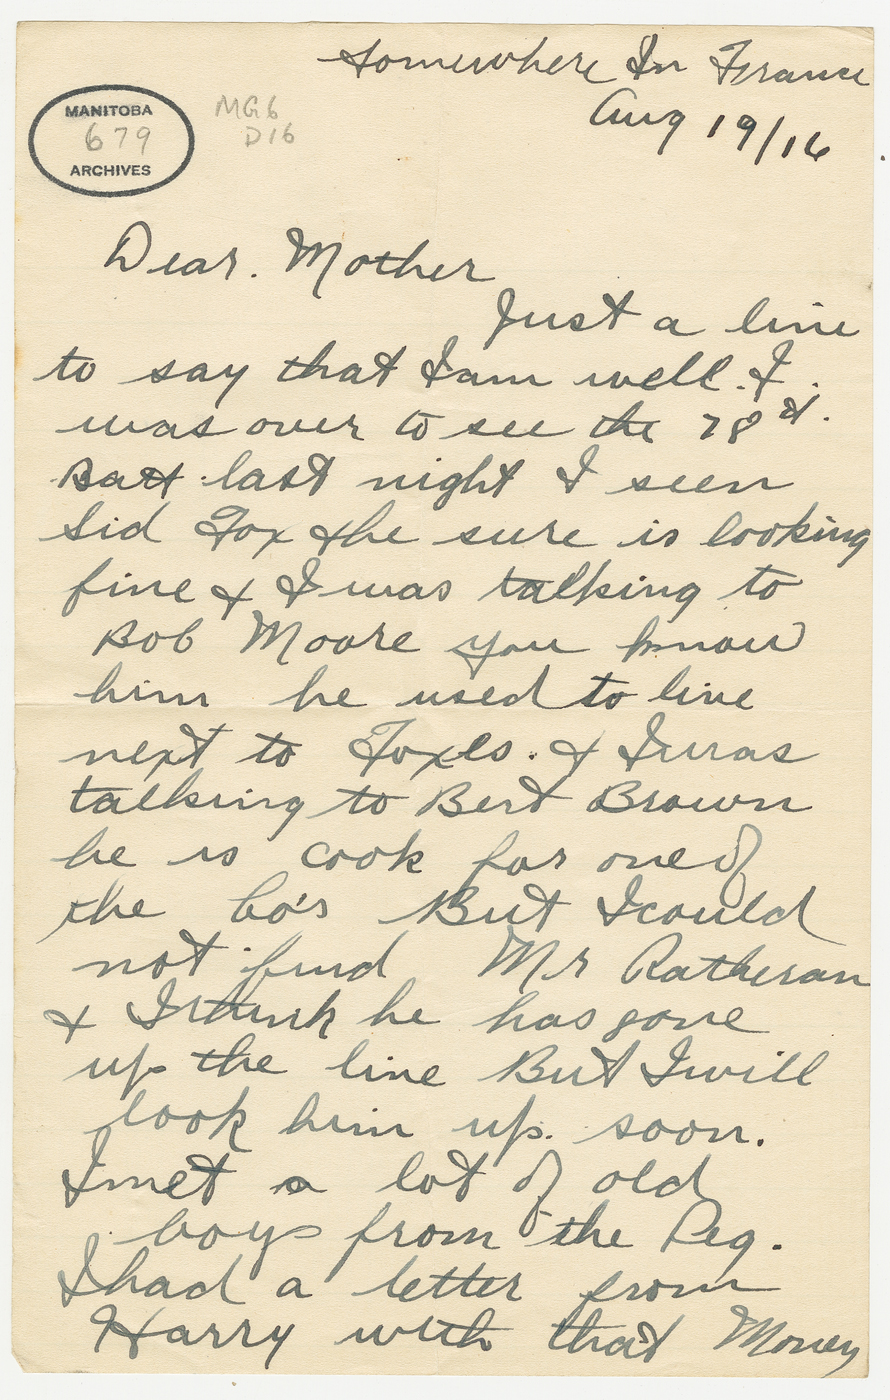 Somewhere In France
Aug 19/16
MANITOBA
679
ARCHIVES
MG6
D16
Dear. Mother
Just a line
to say that I am well. I.
was over to see the 78rd.
Batt last night I seen
Sid Fox & he sure is looking
fine & I was talking to
Bob Moore you know
him he used to live
next to Foxes. & I was
talking to Bert Brown
he is cook for one of
the Co's But I could
not find Mr Ratheran
& I think he has gone
up the line But I will
look him up. soon.
I met a lot of old
boys from the Peg.
I had a letter from
Harry with that Money